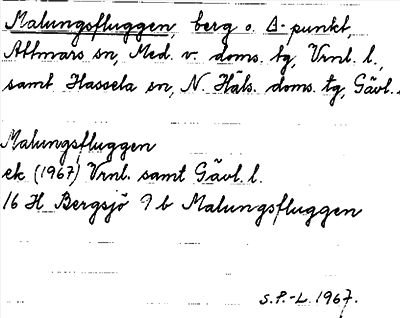 Malungsfluggen, berg o. △-punkt,
Attmars sn, Med. v. doms. tg, Vrnl. l.,
samt Hassela sn, N. Häls. doms. tg, Gävl. l.
Malungsfluggen
ek (1967) Vrnl. samt Gävl. l.
16 H Bergsjö 9 b Malungsfluggen
S.P.-L. 1967.